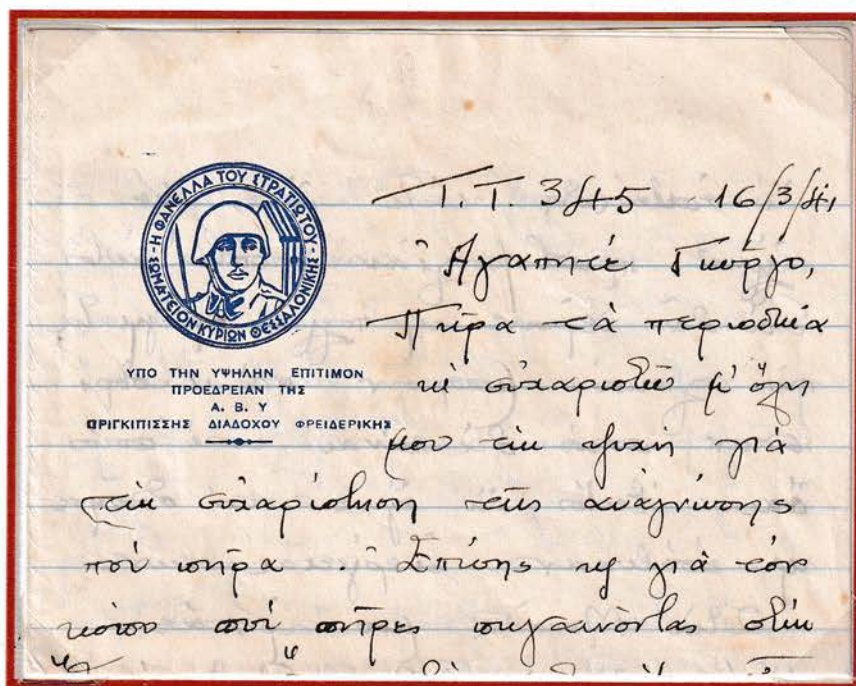 Η ΦΑΝΕΛΛΑ ΤΟΥ ΣΤΡΑΤΙΩΤΟΥ - ΣΩΜΑΤΕΙΟΝ ΚΥΡΙΩΝ ΘΕΣΣΑΛΟΝΙΚΗΣ -
ΥΠΟ ΤΗΝ ΥΨΗΛΗΝ ΕΠΙΤΙΜΟΝ
ΠΡΟΕΔΡΕΙΑΝ ΤΗΣ
Α. Β. Υ
ΠΡΙΓΚΙΠΙΣΣΗΣ ΔΙΑΔΟΧΟΥ ΦΡΕΙΔΕΡΙΚΗΣ
Τ.Τ. 345 16/3/41
Ἀγαπητέ Γιώργο,
Πῆρα τὰ περιοδικά
κι εὐχαριστῶ μ' ὅλη
μου τὴν ψυχὴ γιὰ
τὴν εὐχαρίστηση τῆς ἀναγνώσης
ποὺ πῆρα. Ἐπίσης κι γιὰ τὸν
κόπο ποὺ πῆρες πηγαινόντας στὴν